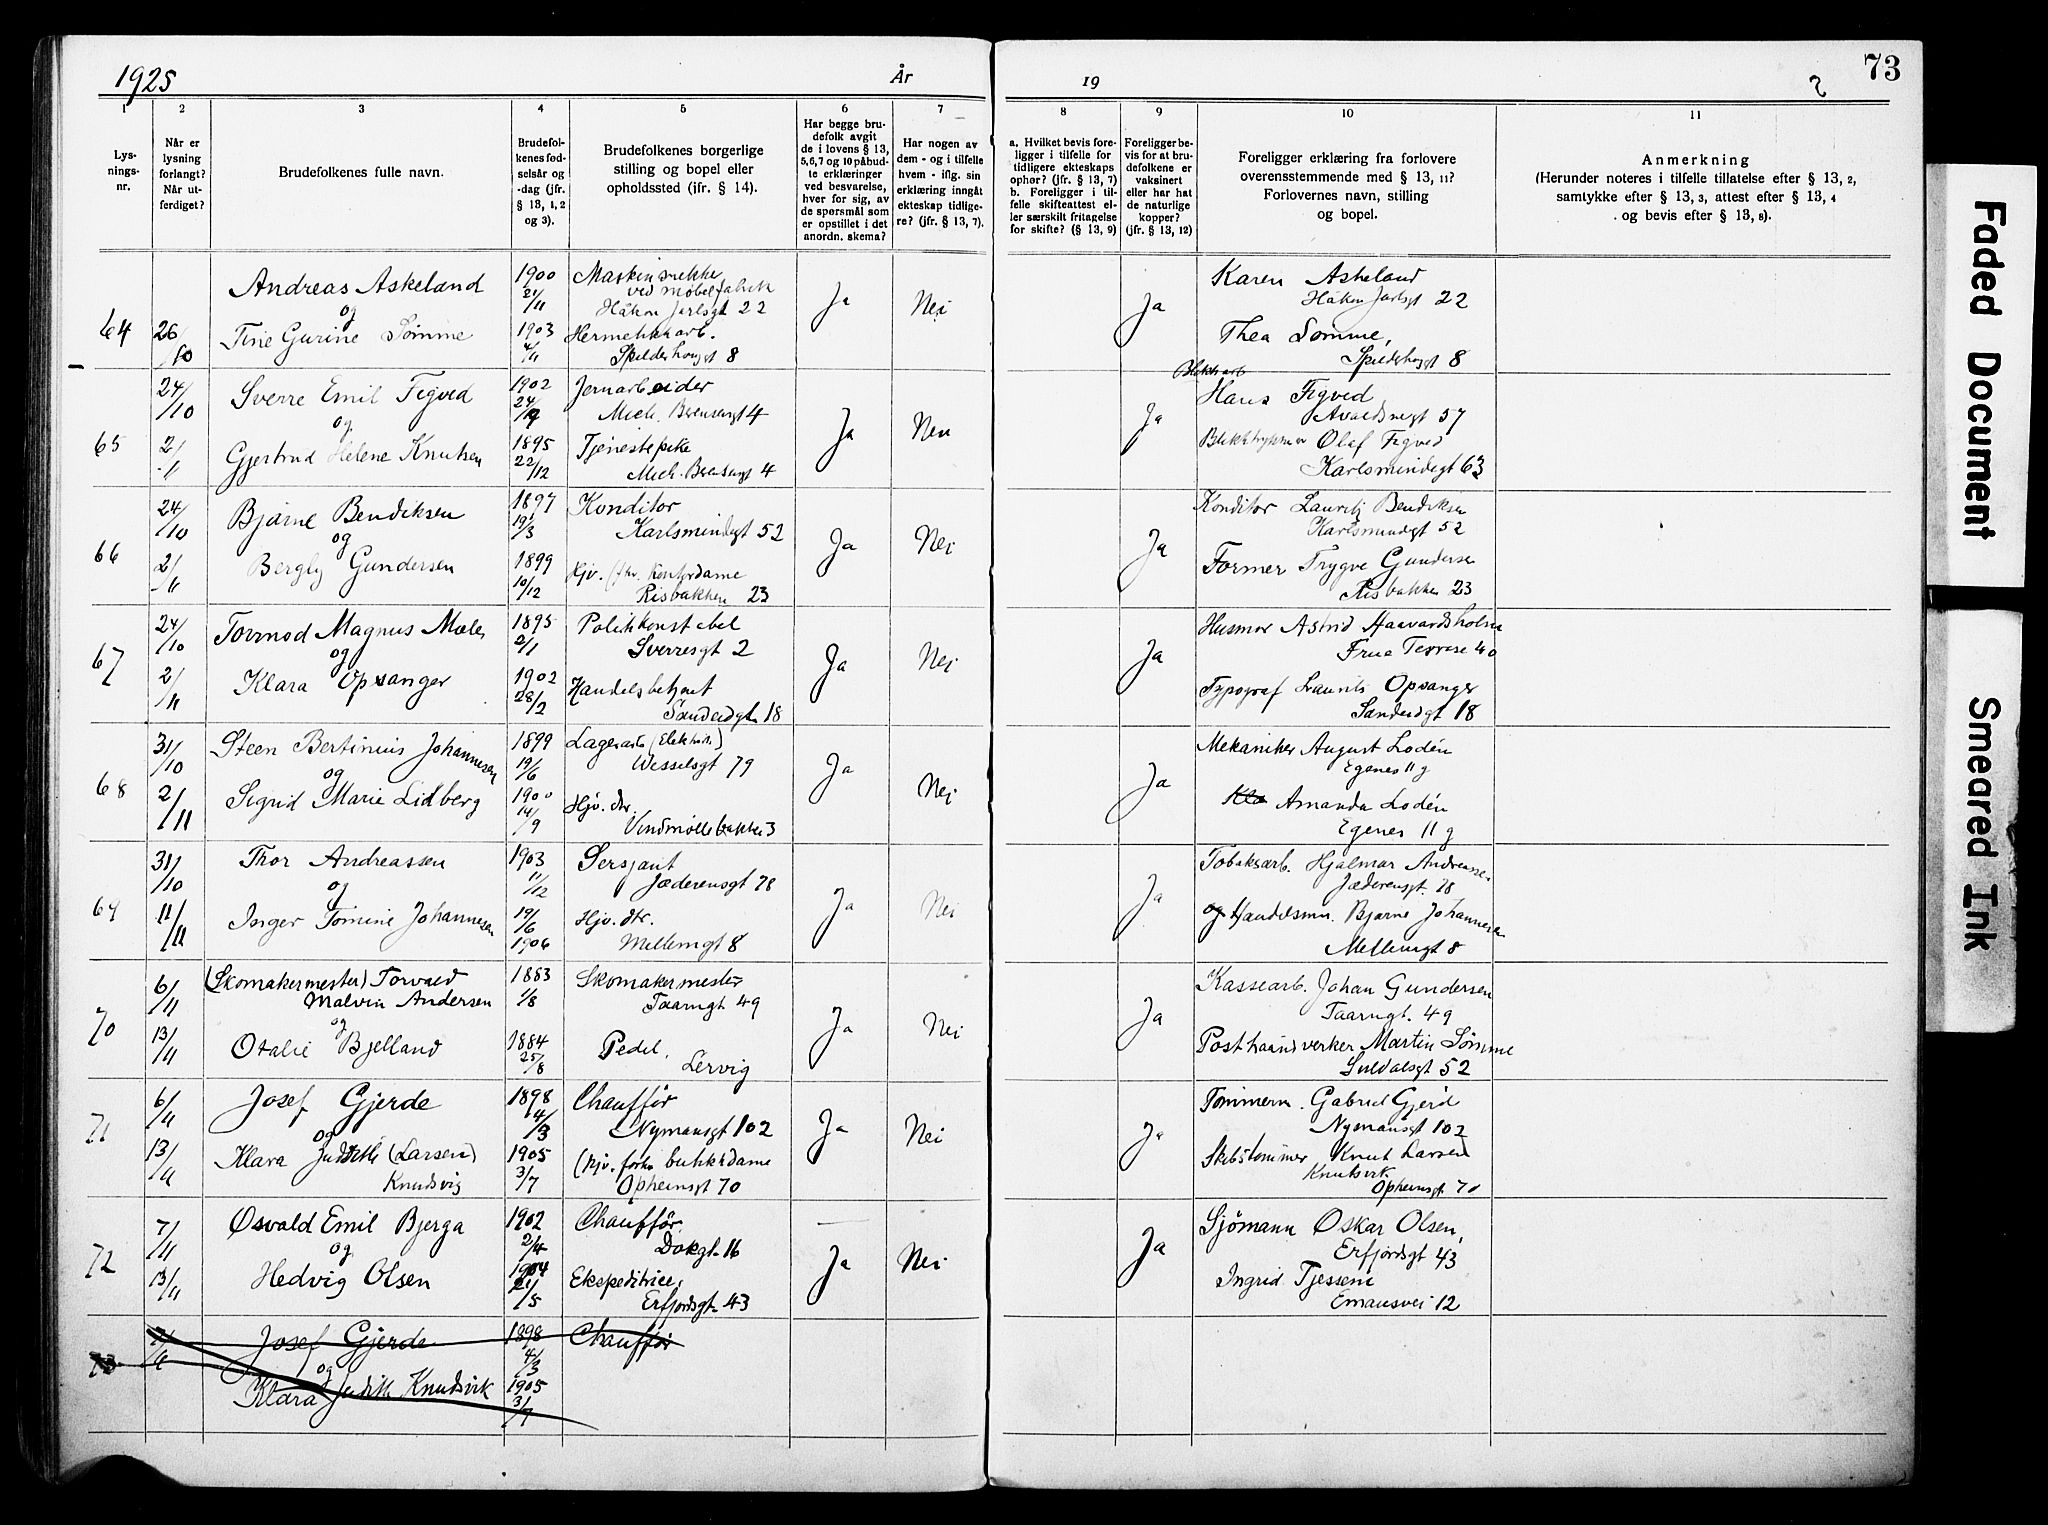 1925
År
19
73
1
2
3
4
5
6
7
8
9
10
11
Lys-
nings-
nr.
Når er
lysning
forlangt?
Når ut-
ferdiget?
Brudefolkenes fulle navn.
Brudefol-
kenes fød-
selsår og
-dag (jfr.
§ 13, 1, 2
og 3).
Brudefolkenes borgerlige
stilling og bopel eller
opholdssted (jfr. § 14).
Har begge bru-
defolk avgit
de i lovens § 13,
5, 6, 7 og 10 påbud-
te erklæringer
ved besvarelse,
hver for sig, av
de spørsmål som
er opstillet i det
anordn. skema?
Har nogen av
dem - og i tilfelle
hvem - iflg. sin
erklæring inngått
ekteskap tidlige-
re? (jfr. § 13, 7).
a. Hvilket bevis fore-
ligger i tilfelle for
tidligere ekteskaps
ophør? (jfr. § 13, 7)
b. Foreligger i til-
felle skifteattest el-
ler særskilt fritagelse
for skifte? (§ 13, 9)
Foreligger be-
vis for at bru-
defolkene er
vaksinert
eller har hat
de naturlige
kopper?
(jfr. § 13, 12)
Foreligger erklæring fra forlovere
overensstemmende med § 13, 11?
Forlovernes navn, stilling
og bopel.
Anmerkning
(Herunder noteres i tilfelle tillatelse efter § 13, 2,
samtykke efter § 13, 3, attest efter § 13, 4
og bevis efter § 13, 8).
64
26/10
Andreas Askeland
og
Tine Gurine Sømme
1900
21/11
1903
4/11
ved møbelfabrik
Håkon Jarlsgt 22
8
Ja
Nei
Ja
Karen Askeland
Håkon Jarlsgt 22
Thea Sømme,
8
65
24/10
2/11
Sverre Emil Figved
og
Gjertrud Helene Knutsen
1902
1895
22/12
Jernarbeider
Mich. Berensgt 4
Tjenestepike
Mich. Berensgt 4
Ja
Nei
Ja
Hans Figved
57
Olaf Figved
Karlsmindegt 63
66
24/10
2/11
Bjarne Bendiksen
og
Gundersen
1897
19/3
1899
10/12
Konditor
Karlsmindegt 52
Hjv. (fhv. Kontordame
Risbakken 23
Ja
Nei
Ja
Konditor Lauritz Bendiksen
Karlsmindegt 52
Former Trygve Gundersen
Risbakken 23
67
24/10
2/11
Tormod Magnus Mæle
og
Klara Opsanger
1895
2/1
1902
28/2
Politikonstabel
Sverresgt 2
Handelsbetjent
18
Ja
Nei
Ja
Husmor Astrid Haavardsholm
Frue Terrase 40
Typograf Laurits Opsanger
18
68
31/10
2/11
Steen Bertinius Johannesen
og
Sigrid Marie Lidberg
1899
19/6
1900
14/9
Lagerarb (Elektrik)
Wesselsgt 79
Hjv. dtr.
Vindmøllebakken 3
Ja
Nei
Ja
Mekaniker August Lodén
Egenes 11 g
Amanda Lodén
Egenes 11 g
69
31/10
11/11
Thor Andreassen
og
Inger Tomine Johannesen
1903
11/12
19/6
1906
Sersjant
Jæderensgt 78
Hjv. dtr.
Mellemgt 8
Ja
Nei
Ja
Tobaksarb. Hjalmar Andreassen
Jæderensgt. 78
og Handelsmn. Bjarne Johannesen
Mellemgt 8
70
6/11
13/11
(Skomakermester) Torvald
Malvin Andersen
og
Otalie Bjelland
1883
1/8
1884
25/8
Skomakermester
Taarngt 49
Pedel,
Lervig
Ja
Nei
Ja
Kassearb. Johan Gundersen
Taarngt. 49
Posthaandverker Martin Sømme
Suldalsgt 52
71
6/11
13/11
Josef Gjerde
og
Klara Judith (Larsen)
Knudsvig
1898
4/3
1905
3/7
Chauffør
Nymansgt 102
(Hjv. forh. butikkdame
Opheimsgt 70
Ja
Nei
Ja
Tømmerm. Gabriel Gjerd
Nymansgt 102
Skibstømmer Knut Larsen
Knutsvik
Opheimsgt 70
72
7/11
13/11
Osvald Emil Bjerga
og
Hedvig Olsen
1902
2/4
1904
21/5
Chauffør
Dokgt. 16
Ekspeditrice,
Erfjordsgt. 43
Ja
Nei
Ja
Sjömann Oskar Olsen,
Erfjordsgt 43
Ingrid Tjessem
Emausvei 12
73
Josef Gjerde
og
Klara Judith Knudsvik
1898
4/3
1905
3/7
Chauffør
Faded Document
Smeared Ink